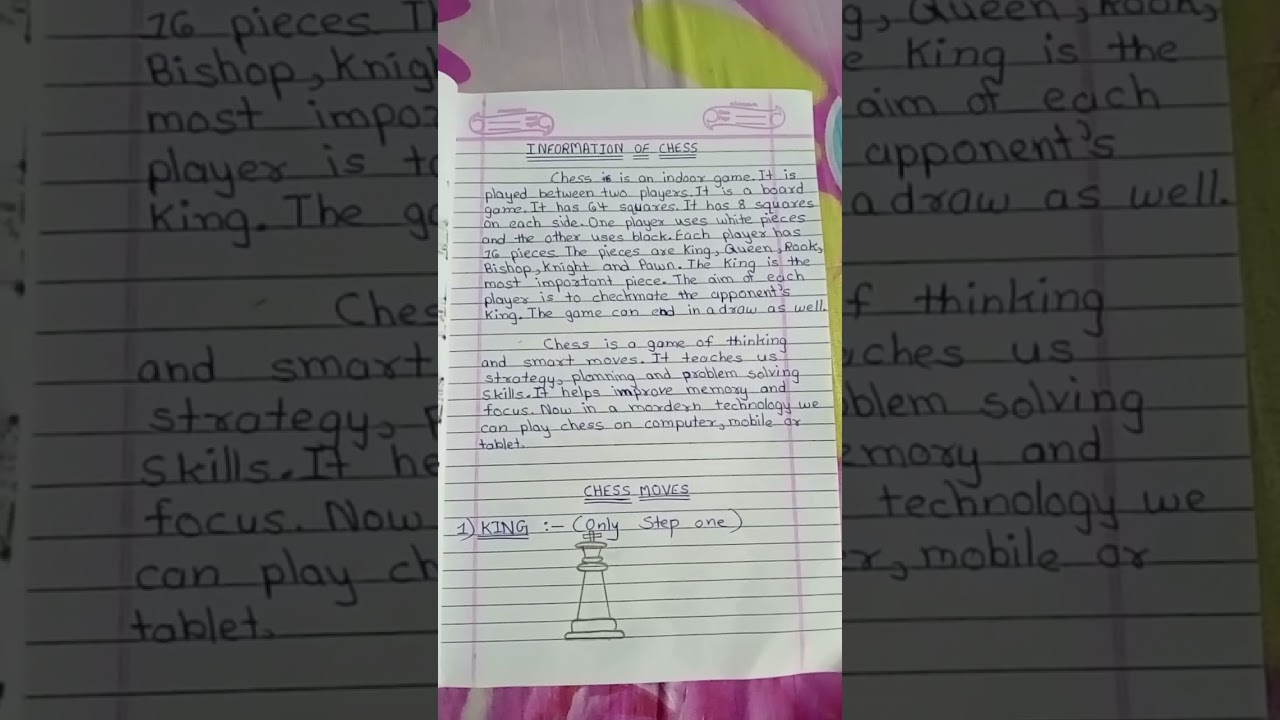 INFORMATION OF CHESS
Chess is is an indoor game. It is
played between two players. It is a board
game. It has 64 squares. It has 8 squares
on each side. One player uses white pieces
and the other uses black. Each player has
16 pieces The pieces are King, Queen, Rook,
Bishop, Knight and Pawn. The King is the
most important piece. The aim of each
player is to checkmate the apponent's
King. The game can end in a draw as well.
Chess is a game of thinking
and smart moves. It teaches us
strategy, planning and problem solving
skills. It helps improve memory and
focus. Now in a mordern technology we
can play chess on computer, mobile or
tablet.
CHESS MOVES
1) KING :- (Only Step one)